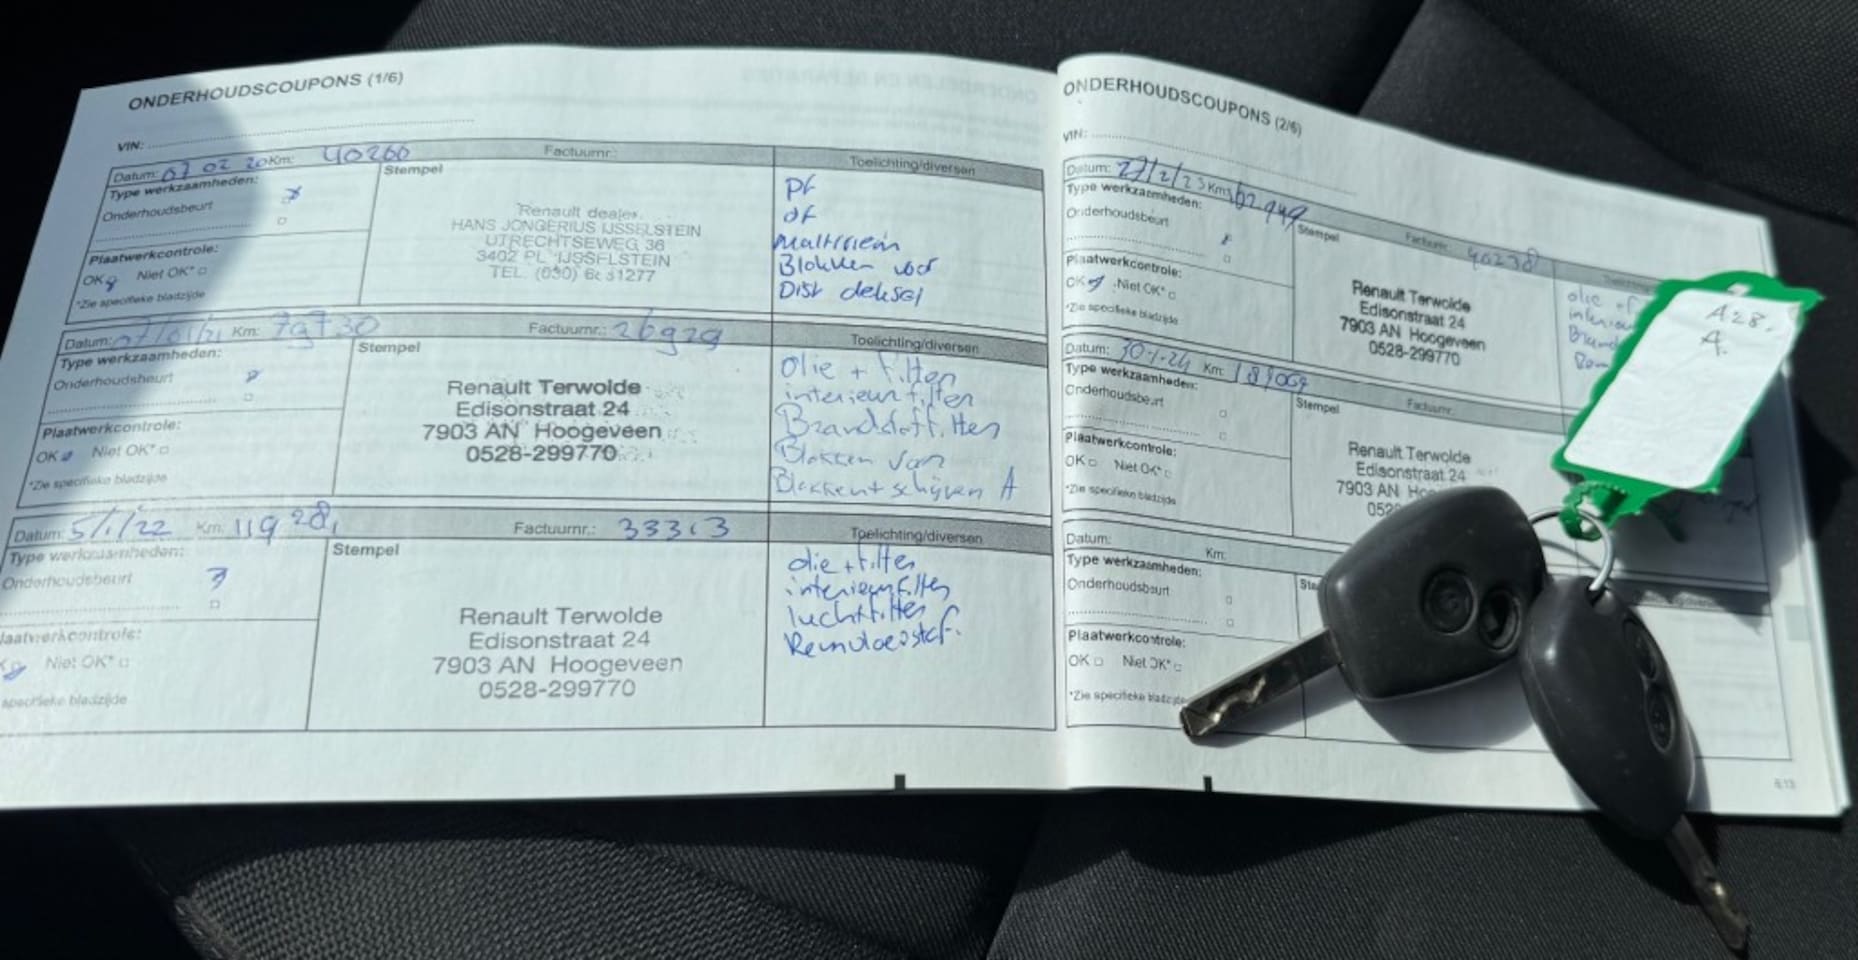 ONDERHOUDSCOUPONS (1/6)
VIN:
Datum: 07 02 20 Km: 40260 Factuurnr.: Toelichting/diversen
Type werkzaamheden:
Onderhoudsbeurt
Plaatwerkcontrole:
OK Niet OK*
*Zie specifieke bladzijde
Stempel
Renault dealer
HANS JONGERIUS IJSSELSTEIN
UTRECHTSEWEG 36
3402 PL IJSSELSTEIN
TEL. (030)
pf
of
Blokken voor
Dist deksel
Datum: 07/01/21 Km: 79730 Factuurnr.: 26929 Toelichting/diversen
Type werkzaamheden:
Onderhoudsbeurt
Plaatwerkcontrole:
OK Niet OK*
*Zie specifieke bladzijde
Stempel
Renault Terwolde
Edisonstraat 24
7903 AN Hoogeveen
0528-299770
Olie + filter
interieurfilter
Brandstoffilter
Blokken van
Blokken + schijven A
Datum: 5/1/22 Km: 119281 Factuurnr.: 33313 Toelichting/diversen
Type werkzaamheden:
Onderhoudsbeurt
laatwerkcontrole:
Niet OK*
specifieke bladzijde
Stempel
Renault Terwolde
Edisonstraat 24
7903 AN Hoogeveen
0528-299770
olie + filter
interieurfilter
luchtfilter
Remvloeistof
ONDERHOUDSCOUPONS (2/6)
VIN:
Datum: Km: Factuurnr. 40238
Type werkzaamheden:
Onderhoudsbeurt
Plaatwerkcontrole:
OK Niet OK*
*Zie specifieke bladzijde
Stempel
Renault Terwolde
Edisonstraat 24
7903 AN Hoogeveen
0528-299770
olie +f
interieu
Brand
Rem
Datum: 30-1-24 Km: 189069 Factuurnr.
Type werkzaamheden:
Onderhoudsbeurt
Plaatwerkcontrole:
OK Niet OK*
*Zie specifieke bladzijde
Stempel
Renault Terwolde
Edisonstraat 24
7903 AN Hoo
052
Datum: Km:
Type werkzaamheden:
Onderhoudsbeurt
Plaatwerkcontrole:
OK Niet OK*
*Zie specifieke bladzijde
Ste
A28.
A.
6.13